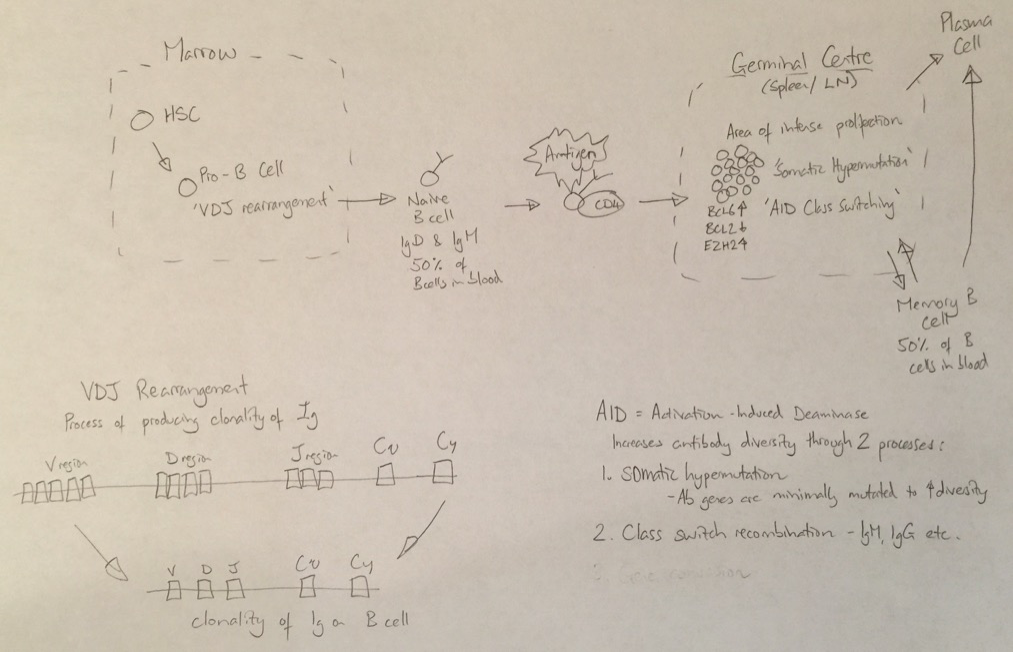 Marrow
HSC
Pro-B Cell
'VDJ rearrangement'
Naive
B cell
IgD & IgM
50% of
B cells in blood
Antigen
CD4
Germinal Centre
(Spleen/ LN)
Area of intense
'Somatic Hypermutation'
'AID Class Switching'
BCL6↑
BCL2↓
EZH2↑
Plasma
Cell
Memory B
Cell
50% of B
cells in blood
VDJ Rearrangement
Process of producing clonality of Ig
V region
D region
J region
Cu
Cy
V
D
J
Cu
Cy
clonality of Ig on B cell
AID = Activation-Induced Deaminase
Increases antibody diversity through 2 processes:
1. Somatic hypermutation
- Ab genes are minimally mutated to ↑diversity
2. Class switch recombination - IgM, IgG etc.